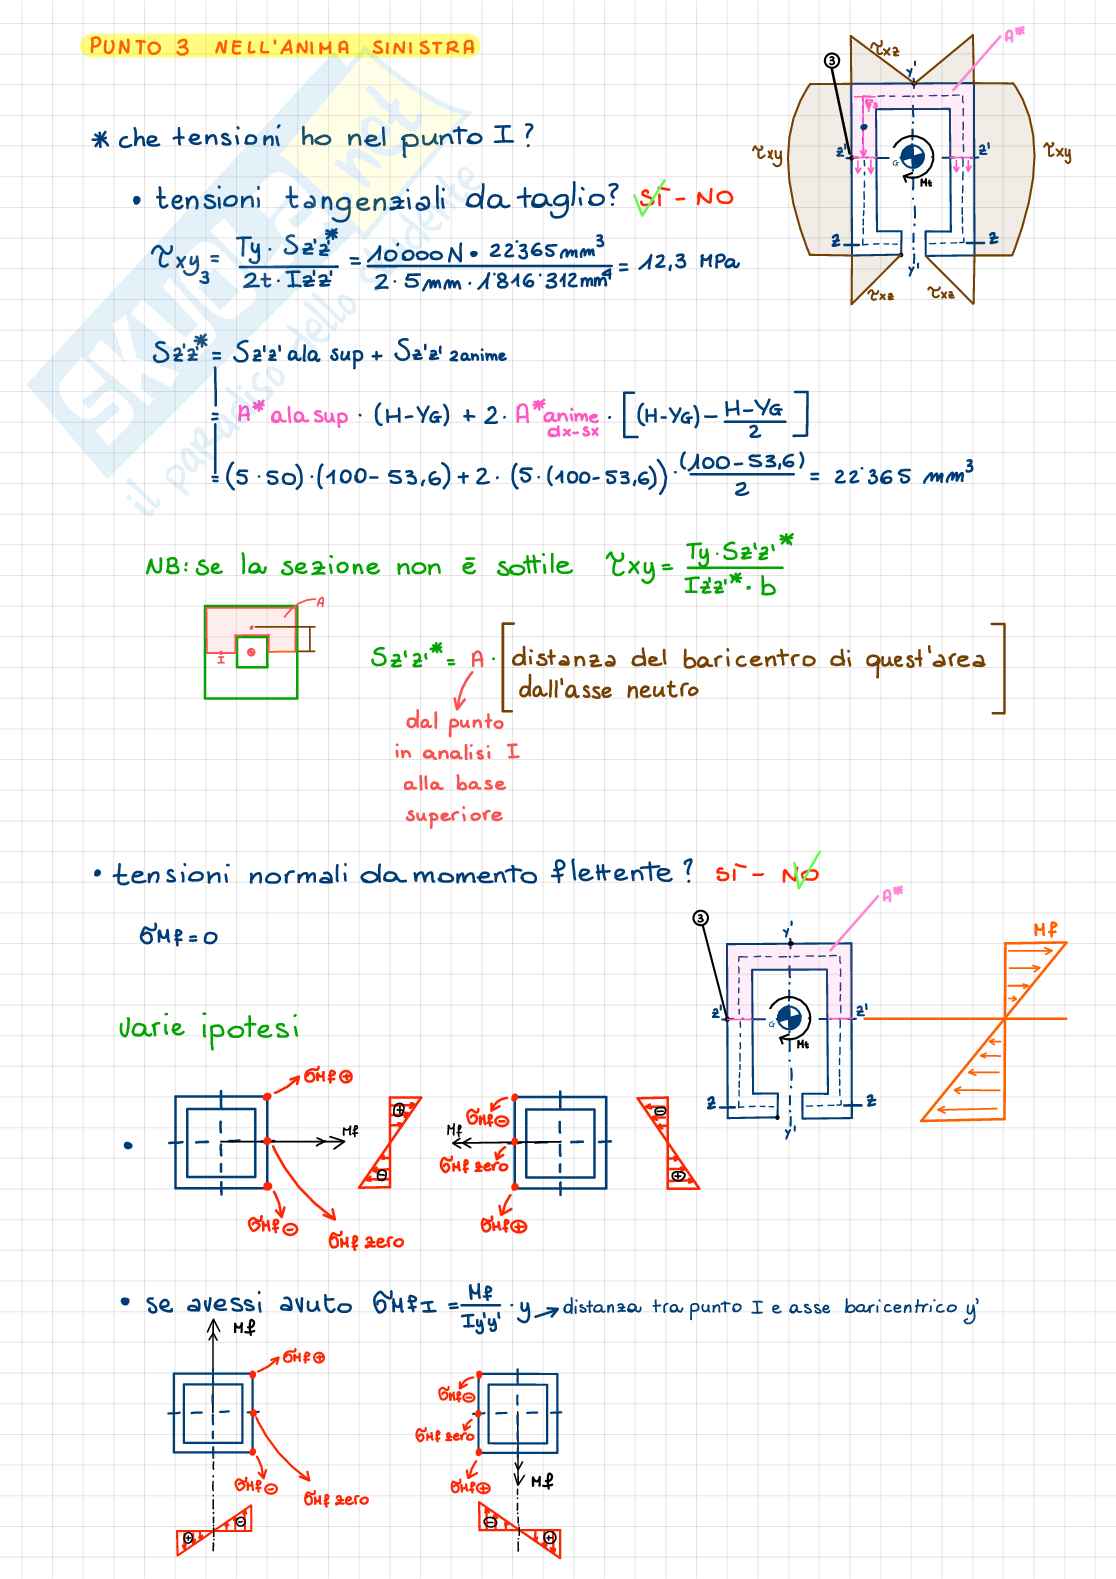 PUNTO 3 NELL'ANIMA SINISTRA
* che tensioni ho nel punto I?
• tensioni tangenziali da taglio? SI - NO
τxy3 = Ty · Sz'z'* / 2t · Iz'z' = 10'000 N · 22'365 mm³ / 2 · 5 mm · 1'816'312 mm⁴ = 12,3 MPa
A*
τxz
y'
3
τxy
z'
G
Mt
z'
τxy
z
z
y'
τxz
τxz
Sz'z'* = Sz'z' ala sup + Sz'z' 2anime
= A* ala sup · (H-YG) + 2 · A* anime dx-sx · [(H-YG) - H-YG / 2]
= (5 · 50) · (100 - 53,6) + 2 · (5 · (100-53,6)) · (100-53,6) / 2 = 22'365 mm³
NB: se la sezione non ē sottile τxy = Ty · Sz'z'* / Iz'z'* · b
A
I
Sz'z'* = A · [distanza del baricentro di quest'area
dall'asse neutro]
dal punto
in analisi I
alla base
superiore
• tensioni normali da momento flettente? SI - NO
σMf = 0
A*
3
y'
Mf
z'
G
Mt
z'
z
z
y'
varie ipotesi
σMf ⊕
Mf
σMf zero
σMf ⊖
⊕
⊖
σMf ⊖
Mf
σMf zero
σMf ⊕
⊖
⊕
• se avessi avuto σMf I = Mf / Iy'y' · y → distanza tra punto I e asse baricentrico y'
Mf
σMf ⊕
σMf ⊖
σMf zero
⊕
⊖
σMf ⊖
σMf zero
σMf ⊕
Mf
⊖
⊕
SKUOLA.net
il paradiso dello studente